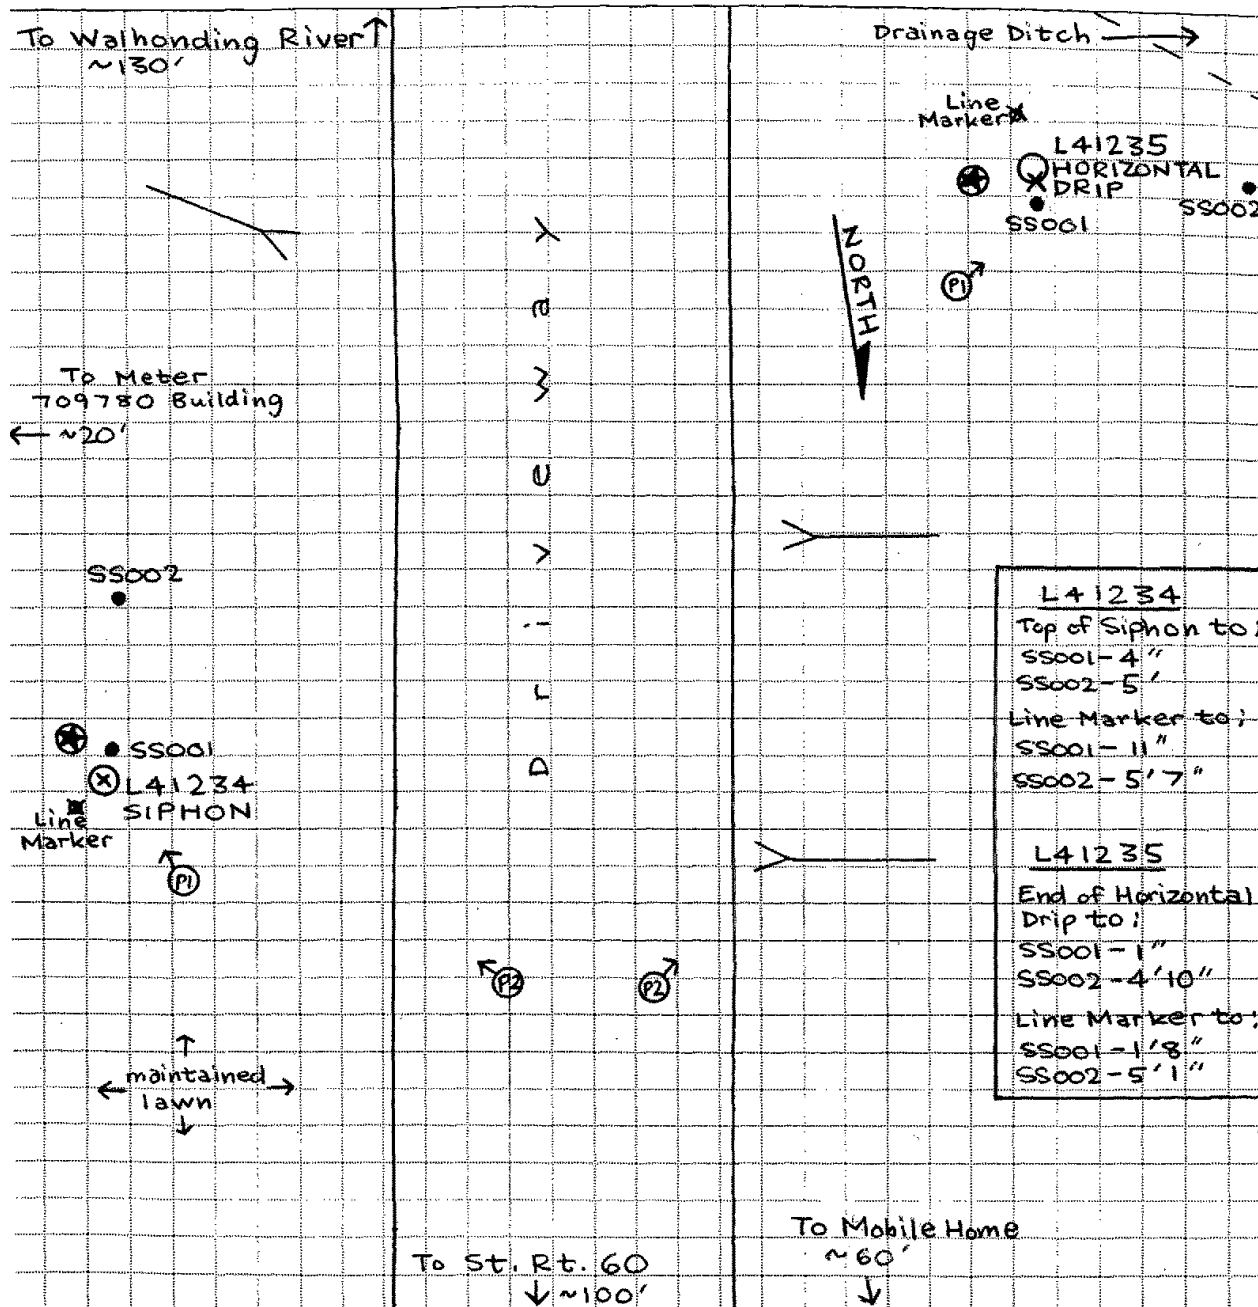 To Walhonding River
~130'
Drainage Ditch
Line
Marker
L41235
HORIZONTAL
DRIP
SS001
SS002
P1
NORTH
To Meter
709780 Building
~20'
DRIVEWAY
SS002
SS001
L41234
SIPHON
Line
Marker
P1
P2
P2
maintained
lawn
L41234
Top of Siphon to:
SS001-4"
SS002-5'
Line Marker to:
SS001-11"
SS002-5'7"
L41235
End of Horizontal
Drip to:
SS001-1"
SS002-4'10"
Line Marker to:
SS001-1'8"
SS002-5'1"
To Mobile Home
~60'
To St. Rt. 60
~100'